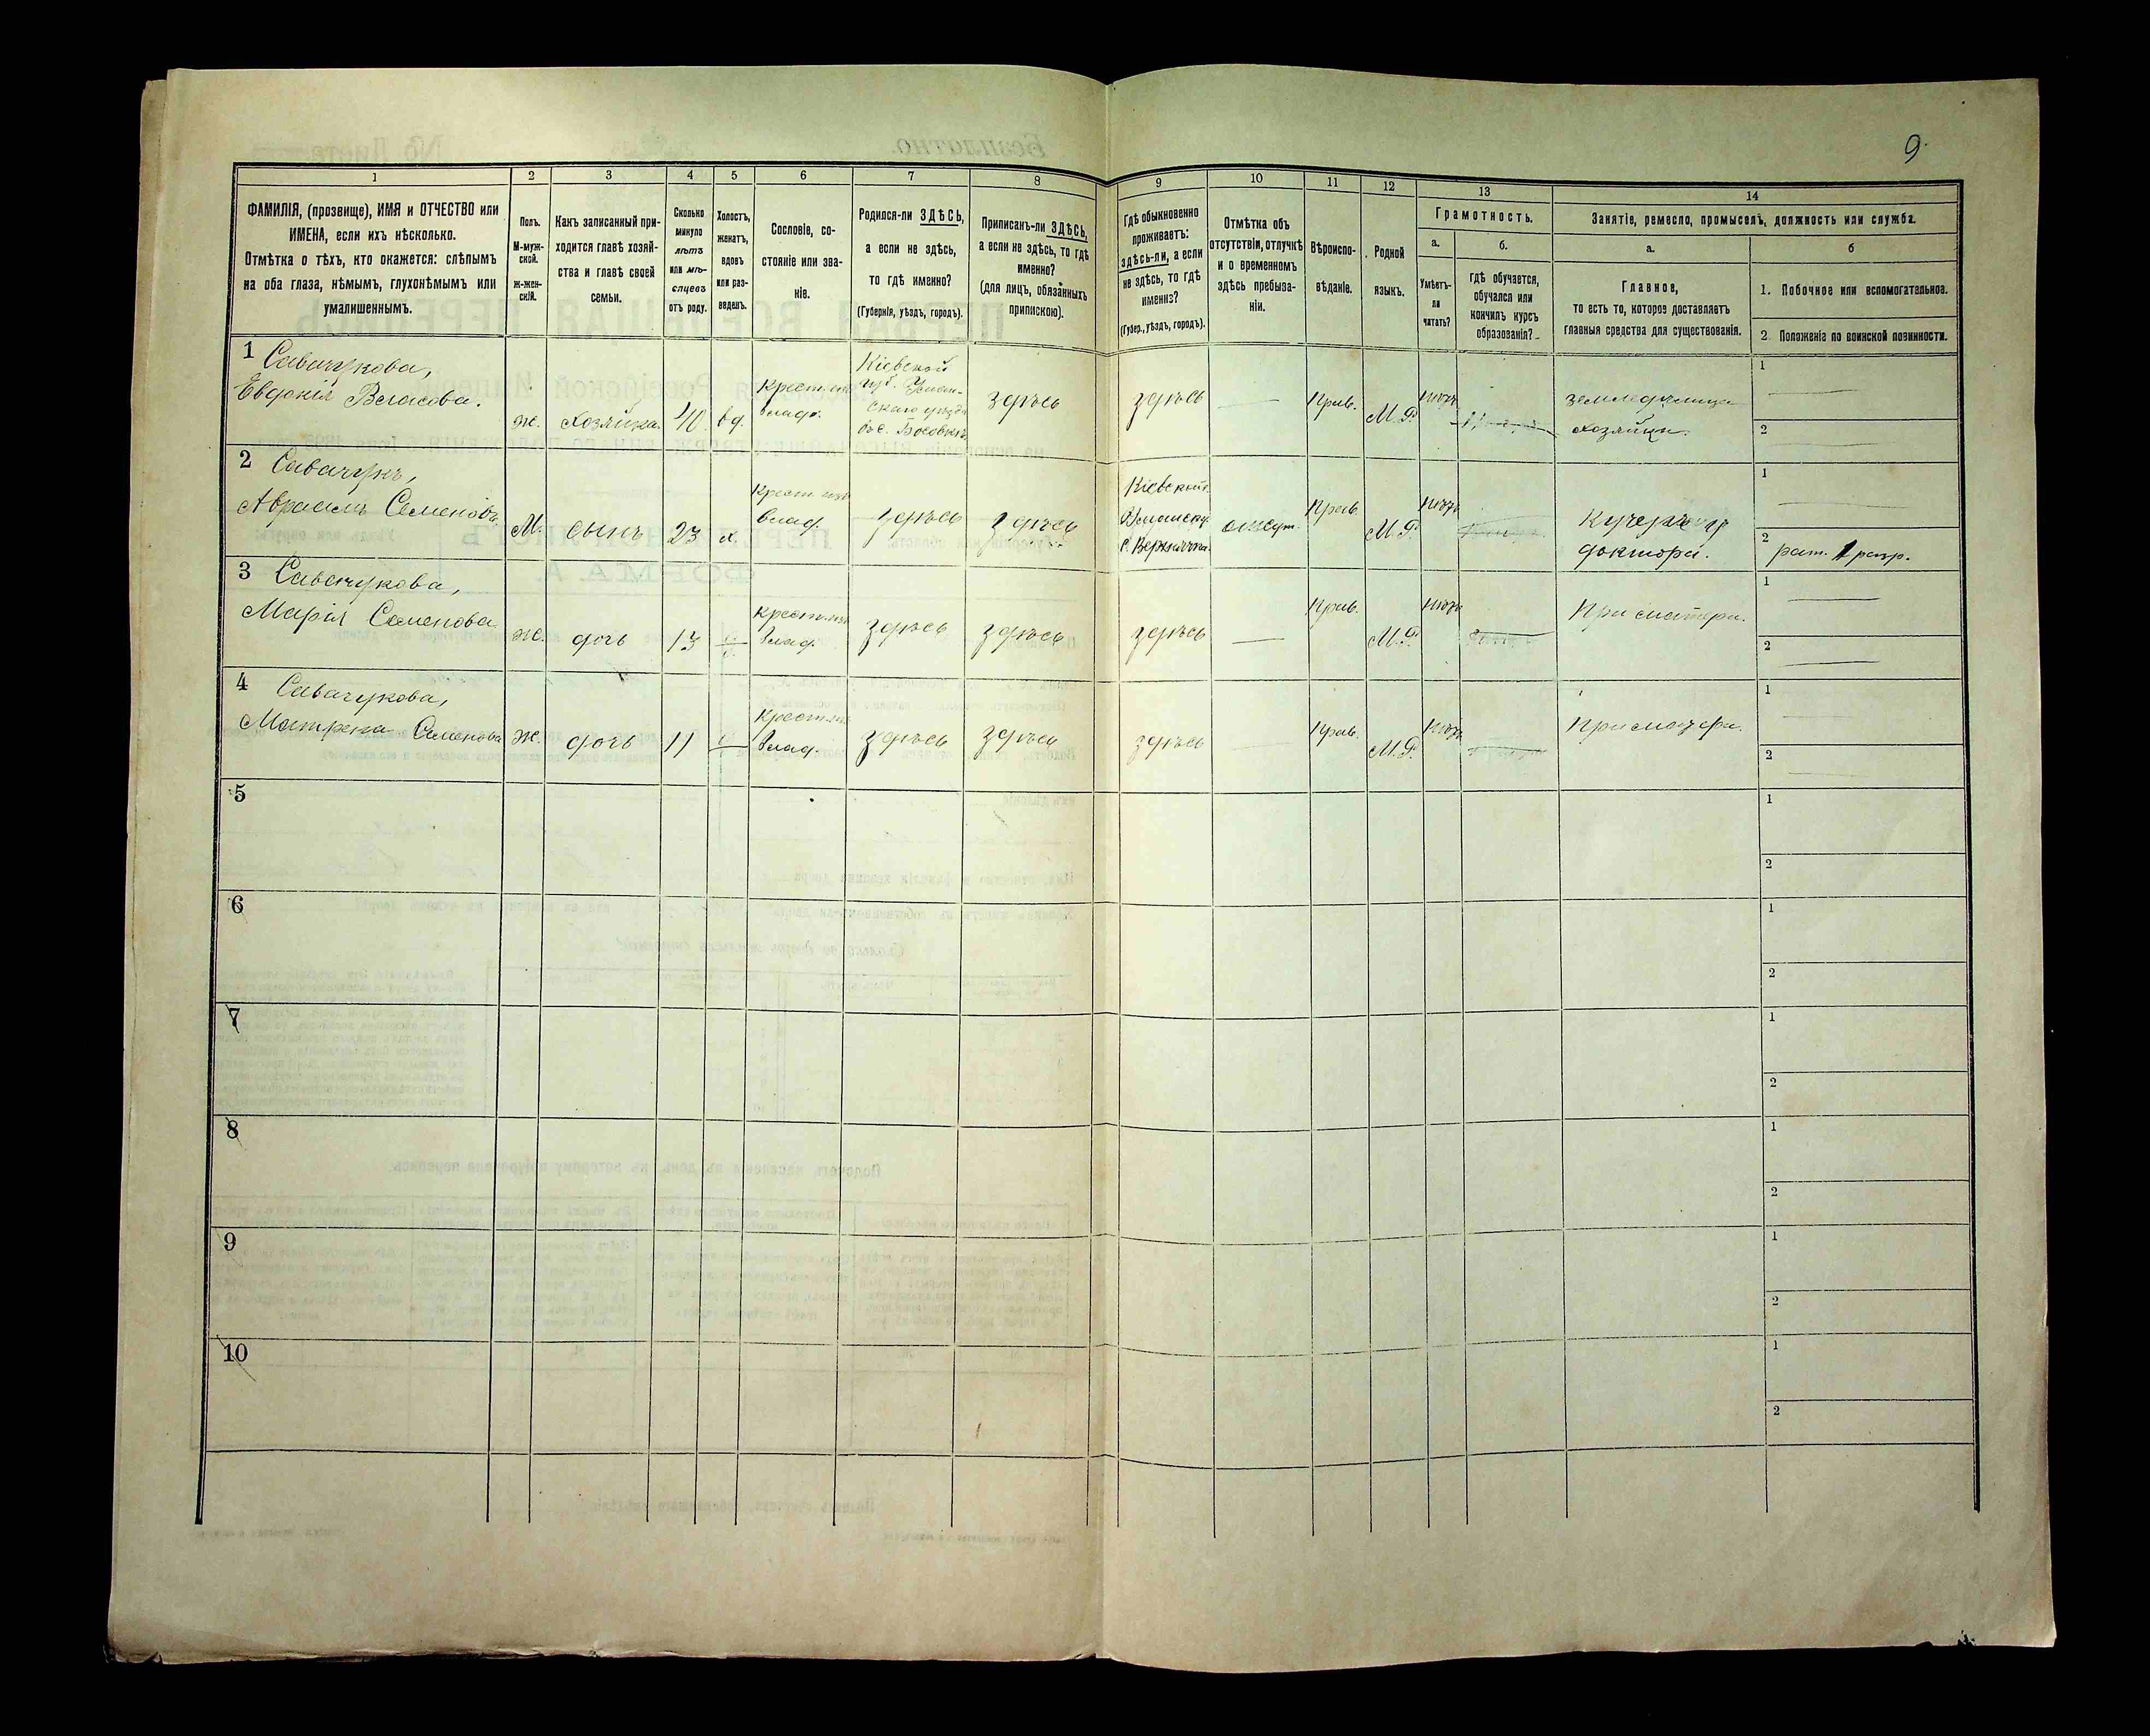 9.
1
2
3
4
5
6
7
8
9
10
11
12
13
14
ФАМИЛІЯ, (прозвище), ИМЯ и ОТЧЕСТВО или
ИМЕНА, если ихъ нѣсколько.
Отмѣтка о тѣхъ, кто окажется: слѣпымъ
на оба глаза, нѣмымъ, глухонѣмымъ или
умалишеннымъ.
Полъ.
М-муж-
ской.
ж-жен-
скій.
Какъ записанный при-
ходится главѣ хозяй-
ства и главѣ своей
семьи.
Сколько
минуло
лѣтъ
или мѣ-
сяцевъ
отъ роду.
Холостъ,
женатъ,
вдовъ
или раз-
веденъ.
Сословіе, со-
стояніе или зва-
ніе.
Родился-ли ЗДѢСЬ,
а если не здѣсь,
то гдѣ именно?
(Губернія, уѣздъ, городъ).
Приписанъ-ли ЗДѢСЬ,
а если не здѣсь, то гдѣ
именно?
(для лицъ, обязанныхъ
припискою).
Гдѣ обыкновенно
проживаетъ:
здѣсь-ли, а если
не здѣсь, то гдѣ
именно?
(Губер., уѣздъ, городъ).
Отмѣтка объ
отсутствіи, отлучкѣ
и о временномъ
здѣсь пребыва-
ніи.
Вѣроиспо-
вѣданіе.
Родной
языкъ.
Грамотность.
а.
Умѣетъ-
ли
читать?
б.
Гдѣ обучается,
обучался или
кончилъ курсъ
образованія?
Занятіе, ремесло, промыселъ, должность или служба.
а.
Главное,
то есть то, которое доставляетъ
главныя средства для существованія.
б
1. Побочное или вспомогательное.
2 Положеніе по воинской повинности.
1 Савачукова,
Евдокія Власова.
ж.
хозяйка.
40.
вд.
Крест. изъ
влад.
Кіевской
губ. Уман-
скаго уѣзда
въ с. Босовкѣ
здѣсь
здѣсь
—
Прав.
М.Р.
нѣтъ
земледѣлица
хозяйка.
1
2
2 Савачукъ,
Авраамъ Семеновъ.
М.
сынъ
23
х.
Крест. изъ
влад.
здѣсь
здѣсь
Кіевской г.
Уманск. у.
с. Вержичка
отсут.
Прав.
М.Р.
нѣтъ
Кучеръ у
доктора.
1
2
рат. 1 разр.
3 Савачукова,
Марія Семенова
ж.
дочь
13
Крест. изъ
влад.
здѣсь
здѣсь
здѣсь
—
Прав.
М.Р.
нѣтъ
При матери.
1
2
4 Савачукова,
Матрена Семенова
ж.
дочь
11
Крест. изъ
влад.
здѣсь
здѣсь
здѣсь
—
Прав.
М.Р.
нѣтъ
При матери.
1
2
5
1
2
6
1
2
7
1
2
8
1
2
9
1
2
10
1
2